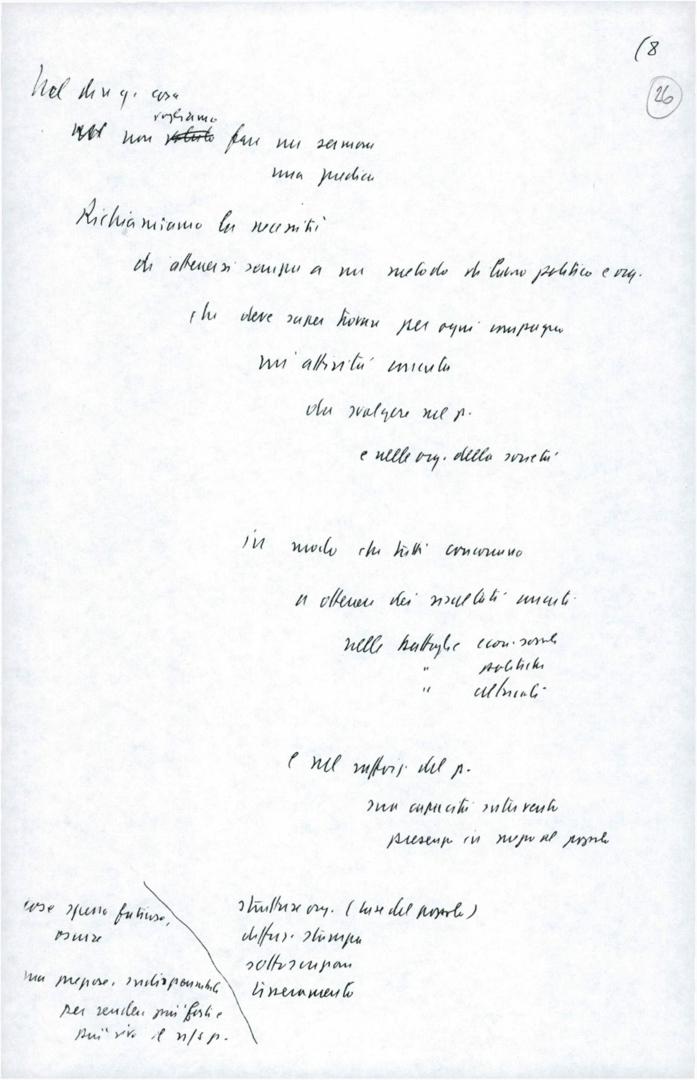 (8
26
Nel dire q. cosa
vogliamo
non fare un sermone
una predica
Richiamiamo la necessità
di attenersi sempre a un metodo di lavoro politico e org.
che deve saper trovare per ogni compagno
un'attività concreta
da svolgere nel p.
e nelle org. della società
in modo che tutti concorrano
a ottenere dei risultati concreti
nelle battaglie econ. sociali
" politiche
" culturali
e nel rafforz. del p.
sua capacità intervento
presenza in mezzo al popolo
cose spesso faticose,
oscure
ma preziose, indispensabili
per rendere più forte e
più vivo il n/s p.
strutture org. (case del popolo)
diffus. stampa
sottoscrizioni
tesseramento